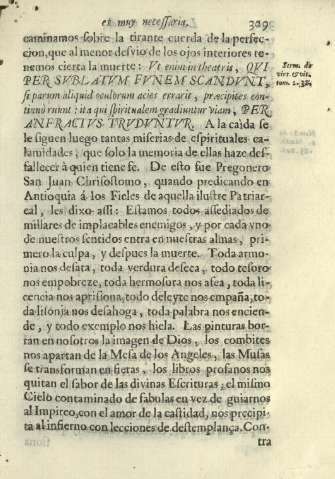 es muy necessaria. 329
caminamos sobre la tirante cuerda de la perfec-
cion, que al menor desvio de los ojos interiores te-
nemos cierta la muerte: Vt enim in theatris, QVI
PER SVBLATVM FVNEM SCANDVNT,
si parum aliquid oculorum acies erravit, præcipites con-
tinuò ruunt: ita qui spiritualem gradiuntur viam, PER
ANFRACTVS TRVDVNTVR. A la caìda se
le siguen luego tantas miserias de espirituales ca-
lamidades, que solo la memoria de ellas haze des-
fallecer à quien tiene fe. De esto fue Pregonero
San Juan Chrisostomo, quando predicando en
Antioquia à los Fieles de aquella ilustre Patriar-
cal, les dixo assi: Estamos todos assediados de
millares de implacables enemigos, y por cada vno
de nuestros sentidos entra en nuestras almas, pri-
mero la culpa, y despues la muerte. Toda armo-
nia nos desata, toda verdura deseca, todo tesoro
nos empobreze, toda hermosura nos afea, toda li-
cencia nos aprisiona, todo deleyte nos empaña, to-
da lisonja nos desahoga, toda palabra nos encien-
de, y todo exemplo nos hiela. Las pinturas bor-
ran en nosotros la imagen de Dios, los combites
nos apartan de la Mesa de los Angeles, las Musas
se transforman en fieras, los libros profanos nos
quitan el sabor de las divinas Escrituras, el mismo
Cielo contaminado de fabulas en vez de guiarnos
al Impireo, con el amor de la castidad, nos precipi-
ta al infierno con lecciones de destemplança. Con-
tra
Serm. de
virt. & vit.
tom. 2. 38.